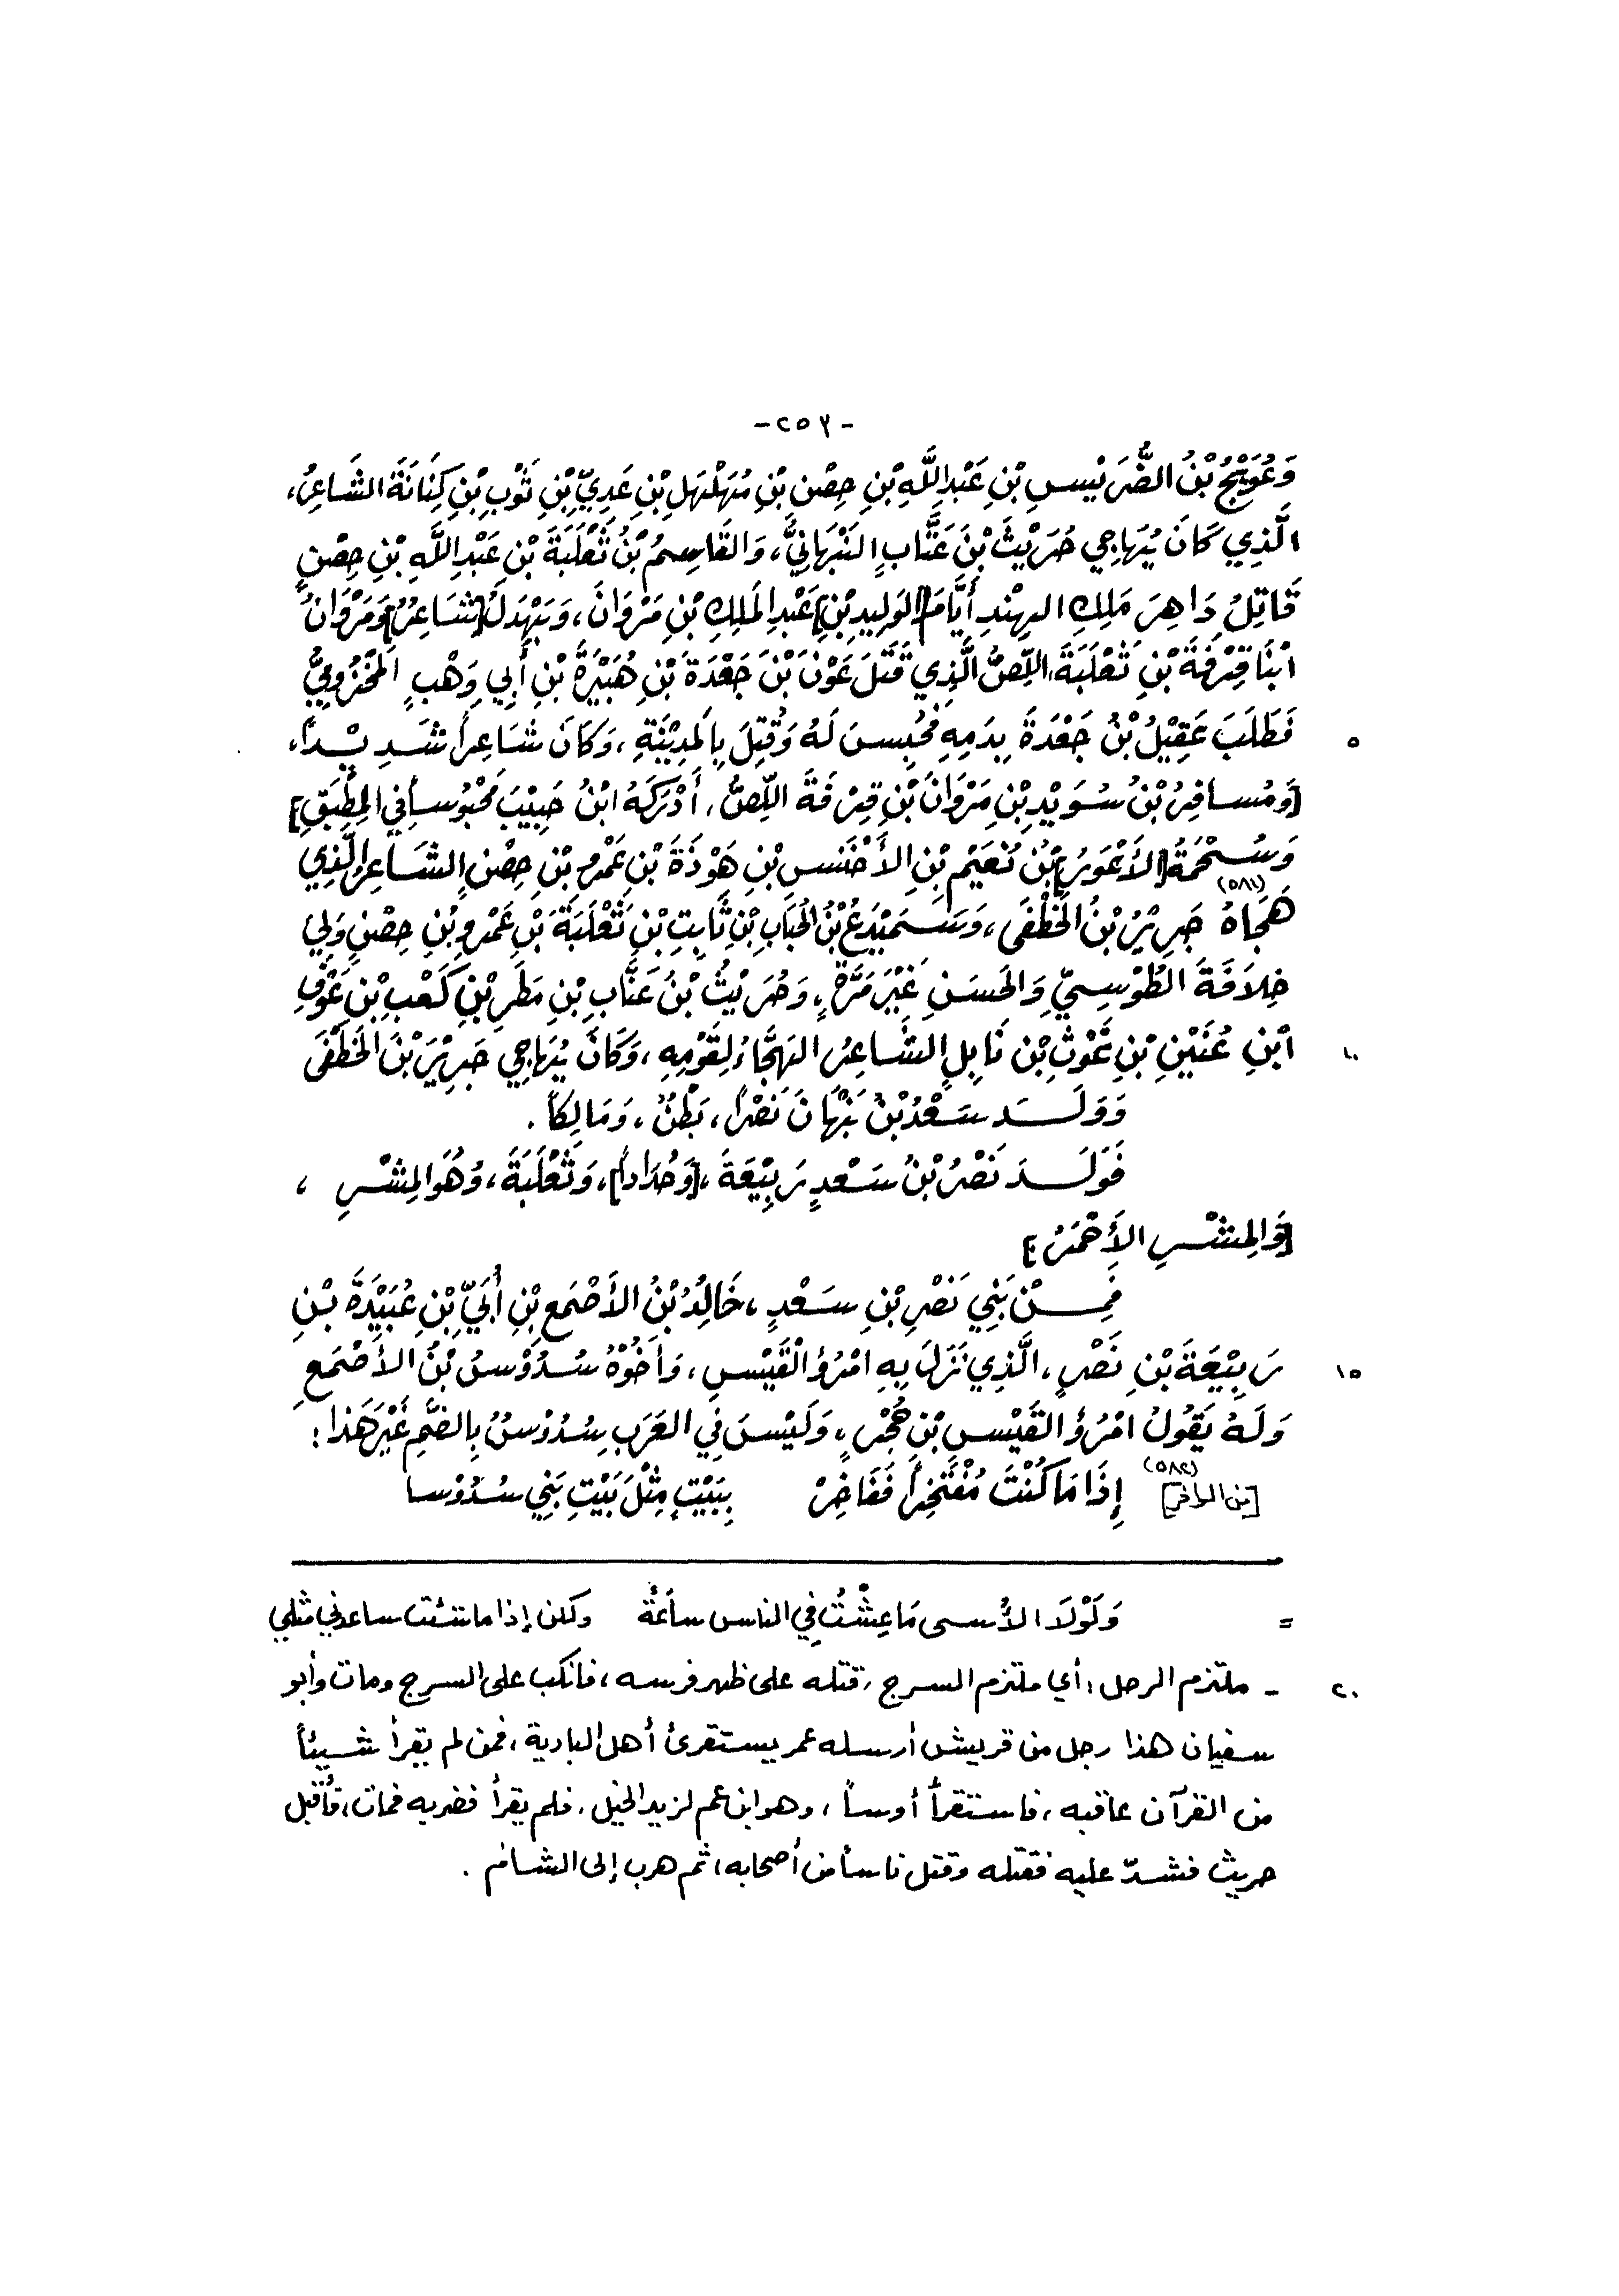 - ٢٥٣ -
وَعُوَيْجُ بْنُ الضُّرَيْسِ بْنِ عَبْدِ اللَّهِ بْنِ حِصْنِ بْنِ مُهَلْهِلِ بْنِ عَدِيِّ بْنِ ثَوْبِ بْنِ كِنَانَةَ الشَّاعِرُ،
الَّذِي كَانَ يُهَاجِي حُرَيْثَ بْنَ عَنَّابٍ النَّبْهَانِيَّ، وَالقَاسِمُ بْنُ ثَعْلَبَةَ بْنِ عَبْدِ اللَّهِ بْنِ حِصْنٍ
قَاتِلُ دَاهِرَ مَلِكِ الهِنْدِ أَيَّامَ [الوَلِيدِ بْنِ] عَبْدِ المَلِكِ بْنِ مَرْوَانَ، وَبَهْدَلُ [شَاعِرٌ] وَمَرْوَانُ
ابْنَا قِرْفَةَ بْنِ ثَعْلَبَةَ، اللِّصُّ الَّذِي قَتَلَ عَوْنَ بْنَ جَعْدَةَ بْنِ هُبَيْرَةَ بْنِ أَبِي وَهْبٍ المَخْزُومِيُّ
٥ فَطَلَبَ عَقِيْلُ بْنُ جَعْدَةَ بِدَمِهِ فَحُبِسَ لَهُ وَقُتِلَ بِالمَدِيْنَةِ، وَكَانَ شَاعِراً شَدِيْداً،
[وَمُسَافِرُ بْنُ سُوَيْدِ بْنِ مَرْوَانَ بْنِ قِرْفَةَ اللِّصُّ، أَدْرَكَهُ ابْنُ حَبِيْبَ مَحْبُوساً فِي المُطْبَقِ]
وَسُحْمَةُ [الأَعْوَرُ] بْنُ نُعَيْمِ بْنِ الأَخْنَسِ بْنِ هَوْذَةَ بْنِ عَمْرِو بْنِ حِصْنٍ الشَّاعِرُ الَّذِي
هَجَاهُ (٥٨١) جَرِيْرُ بْنُ الخَطَفَى، وَسَمَيْدَعُ بْنُ الحُبَابِ بْنِ ثَابِتِ بْنِ ثَعْلَبَةَ بْنِ عَمْرِو بْنِ حِصْنٍ وَلِيَ
خِلَافَةَ الطُّوْسِيِّ وَالحَسَنِ غَيْرَ مَرَّةٍ، وَحُرَيْثُ بْنُ عَنَّابِ بْنِ مَطَرِ بْنِ كَعْبِ بْنِ عَوْفِ
١٠ ابْنِ عُنَيْنِ بْنِ غَوْثِ بْنِ نَابِلٍ الشَّاعِرُ الهَجَّاءُ لِقَوْمِهِ، وَكَانَ يُهَاجِي جَرِيْرَ بْنَ الخَطَفَى
وَوَلَدَ سَعْدُ بْنُ نَبْهَانَ نَصْراً، بَطْنٌ، وَمَالِكاً.
فَوَلَدَ نَصْرُ بْنُ سَعْدٍ رَبِيْعَةَ، [وَحُدَاداً]، وَثَعْلَبَةَ، وَهُوَ المِشْرِ،
[وَالمِشْرِ الأَحْمَرُ]
فَمِنْ بَنِي نَصْرِ بْنِ سَعْدٍ، خَالِدُ بْنُ الأَصْمَعِ بْنِ أُبَيِّ بْنِ عُبَيْدَةَ بْنِ
١٥ رَبِيْعَةَ بْنِ نَصْرٍ، الَّذِي نَزَلَ بِهِ امْرُؤُ الْقَيْسِ، وَأَخُوْهُ سُدُوْسُ بْنُ الأَصْمَعِ
وَلَهُ يَقُولُ امْرُؤُ القَيْسِ بْنِ حُجْرٍ، وَلَيْسَ فِي العَرَبِ سُدُوْسٌ بِالضَّمِّ غَيْرَ هَذَا:
[من الوافر] (٥٨٢) إِذَا مَا كُنْتَ مُفْتَخِراً فَفَاخِرْ بِبَيْتٍ مِثْلِ بَيْتِ بَنِي سُدُوْسا
= وَلَوْلَا الأُسى مَا عِشْتُ فِي الناس ساعَةً ولكن إذا ما شئت ساعدني مثلي
٢٠ - ملتزم الرحل: أي ملتزم السرج، قتله على ظهر فرسه، فانكب على السرج ومات وأبو
سفيان هذا رجل من قريش أرسله عمر يستقرئ أهل البادية، فمن لم يقرأ شيئاً
من القرآن عاقبه، فاستقرأ أوساً، وهو ابن عم لزيد الخيل، فلم يقرأ فضربه فمات، فأقبل
حريث فشدّ عليه فقتله وقتل ناساً من أصحابه، ثم هرب إلى الشام.